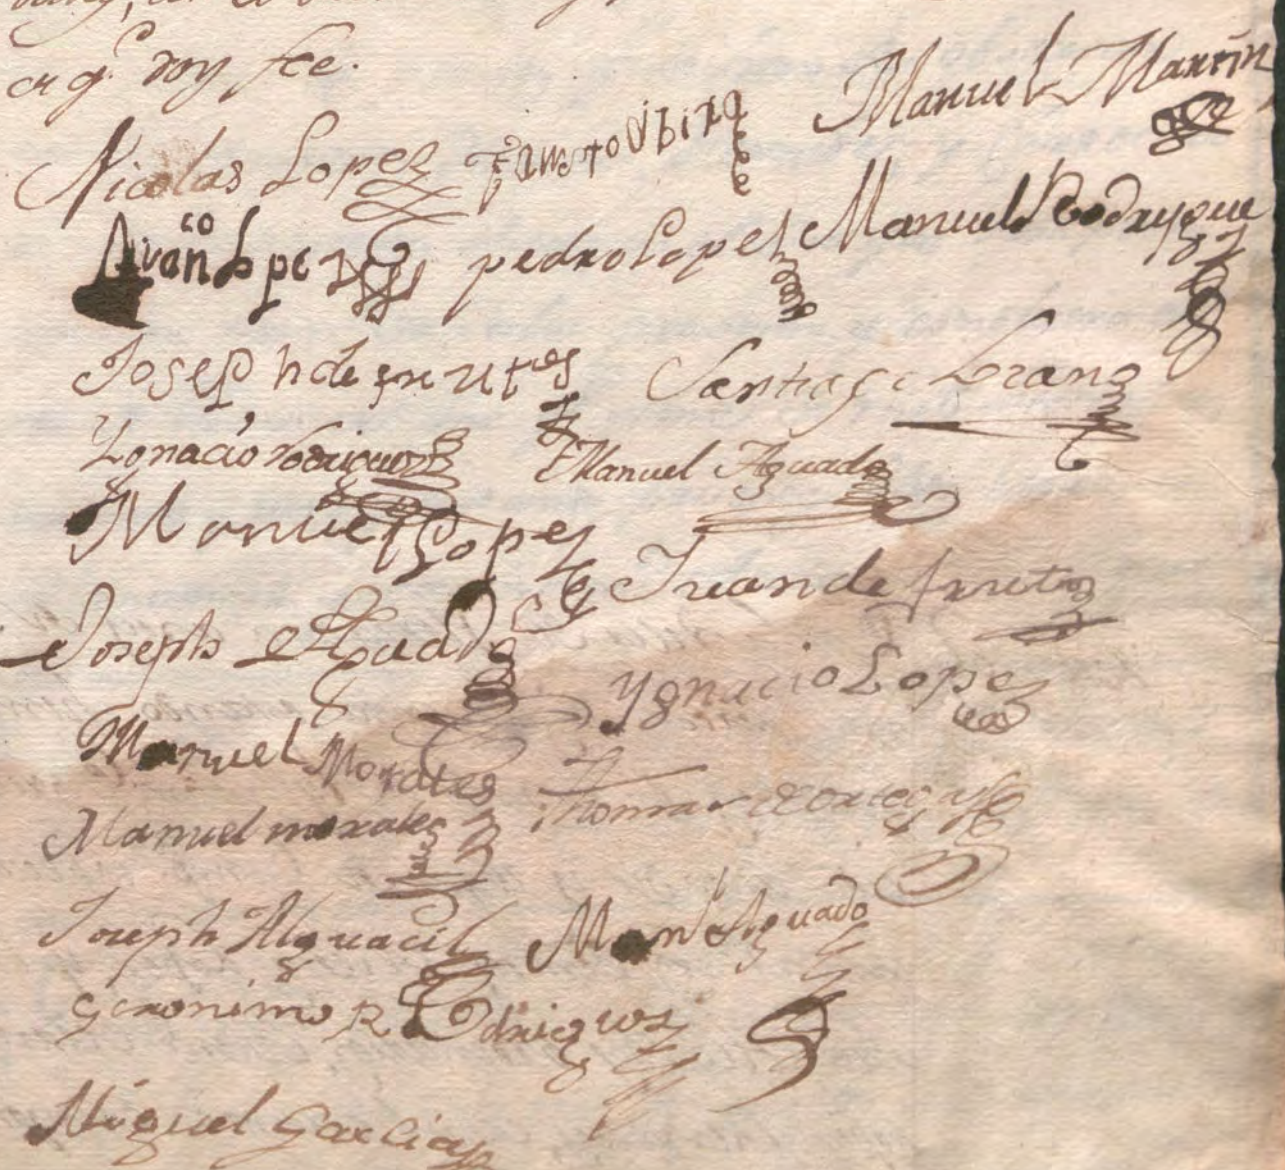 q.e doy fee.
Nicolas Lopez Fausto Ubita Manuel Martin
Fran.co Lopez pedro Lopez Manuel Rodrygue
Joseph de frutos Santiago Lozano
Ygnacio rodriguez Manuel Aguado
Manuel Lopez Juan de frutos
Joseph Aguado Ygnacio Lopez
Manuel Morales Thomas de ortega
Manuel morales
Joseph Alguacil Man.l Aguado
Geronimo Rodriguez
Miguel Garcia